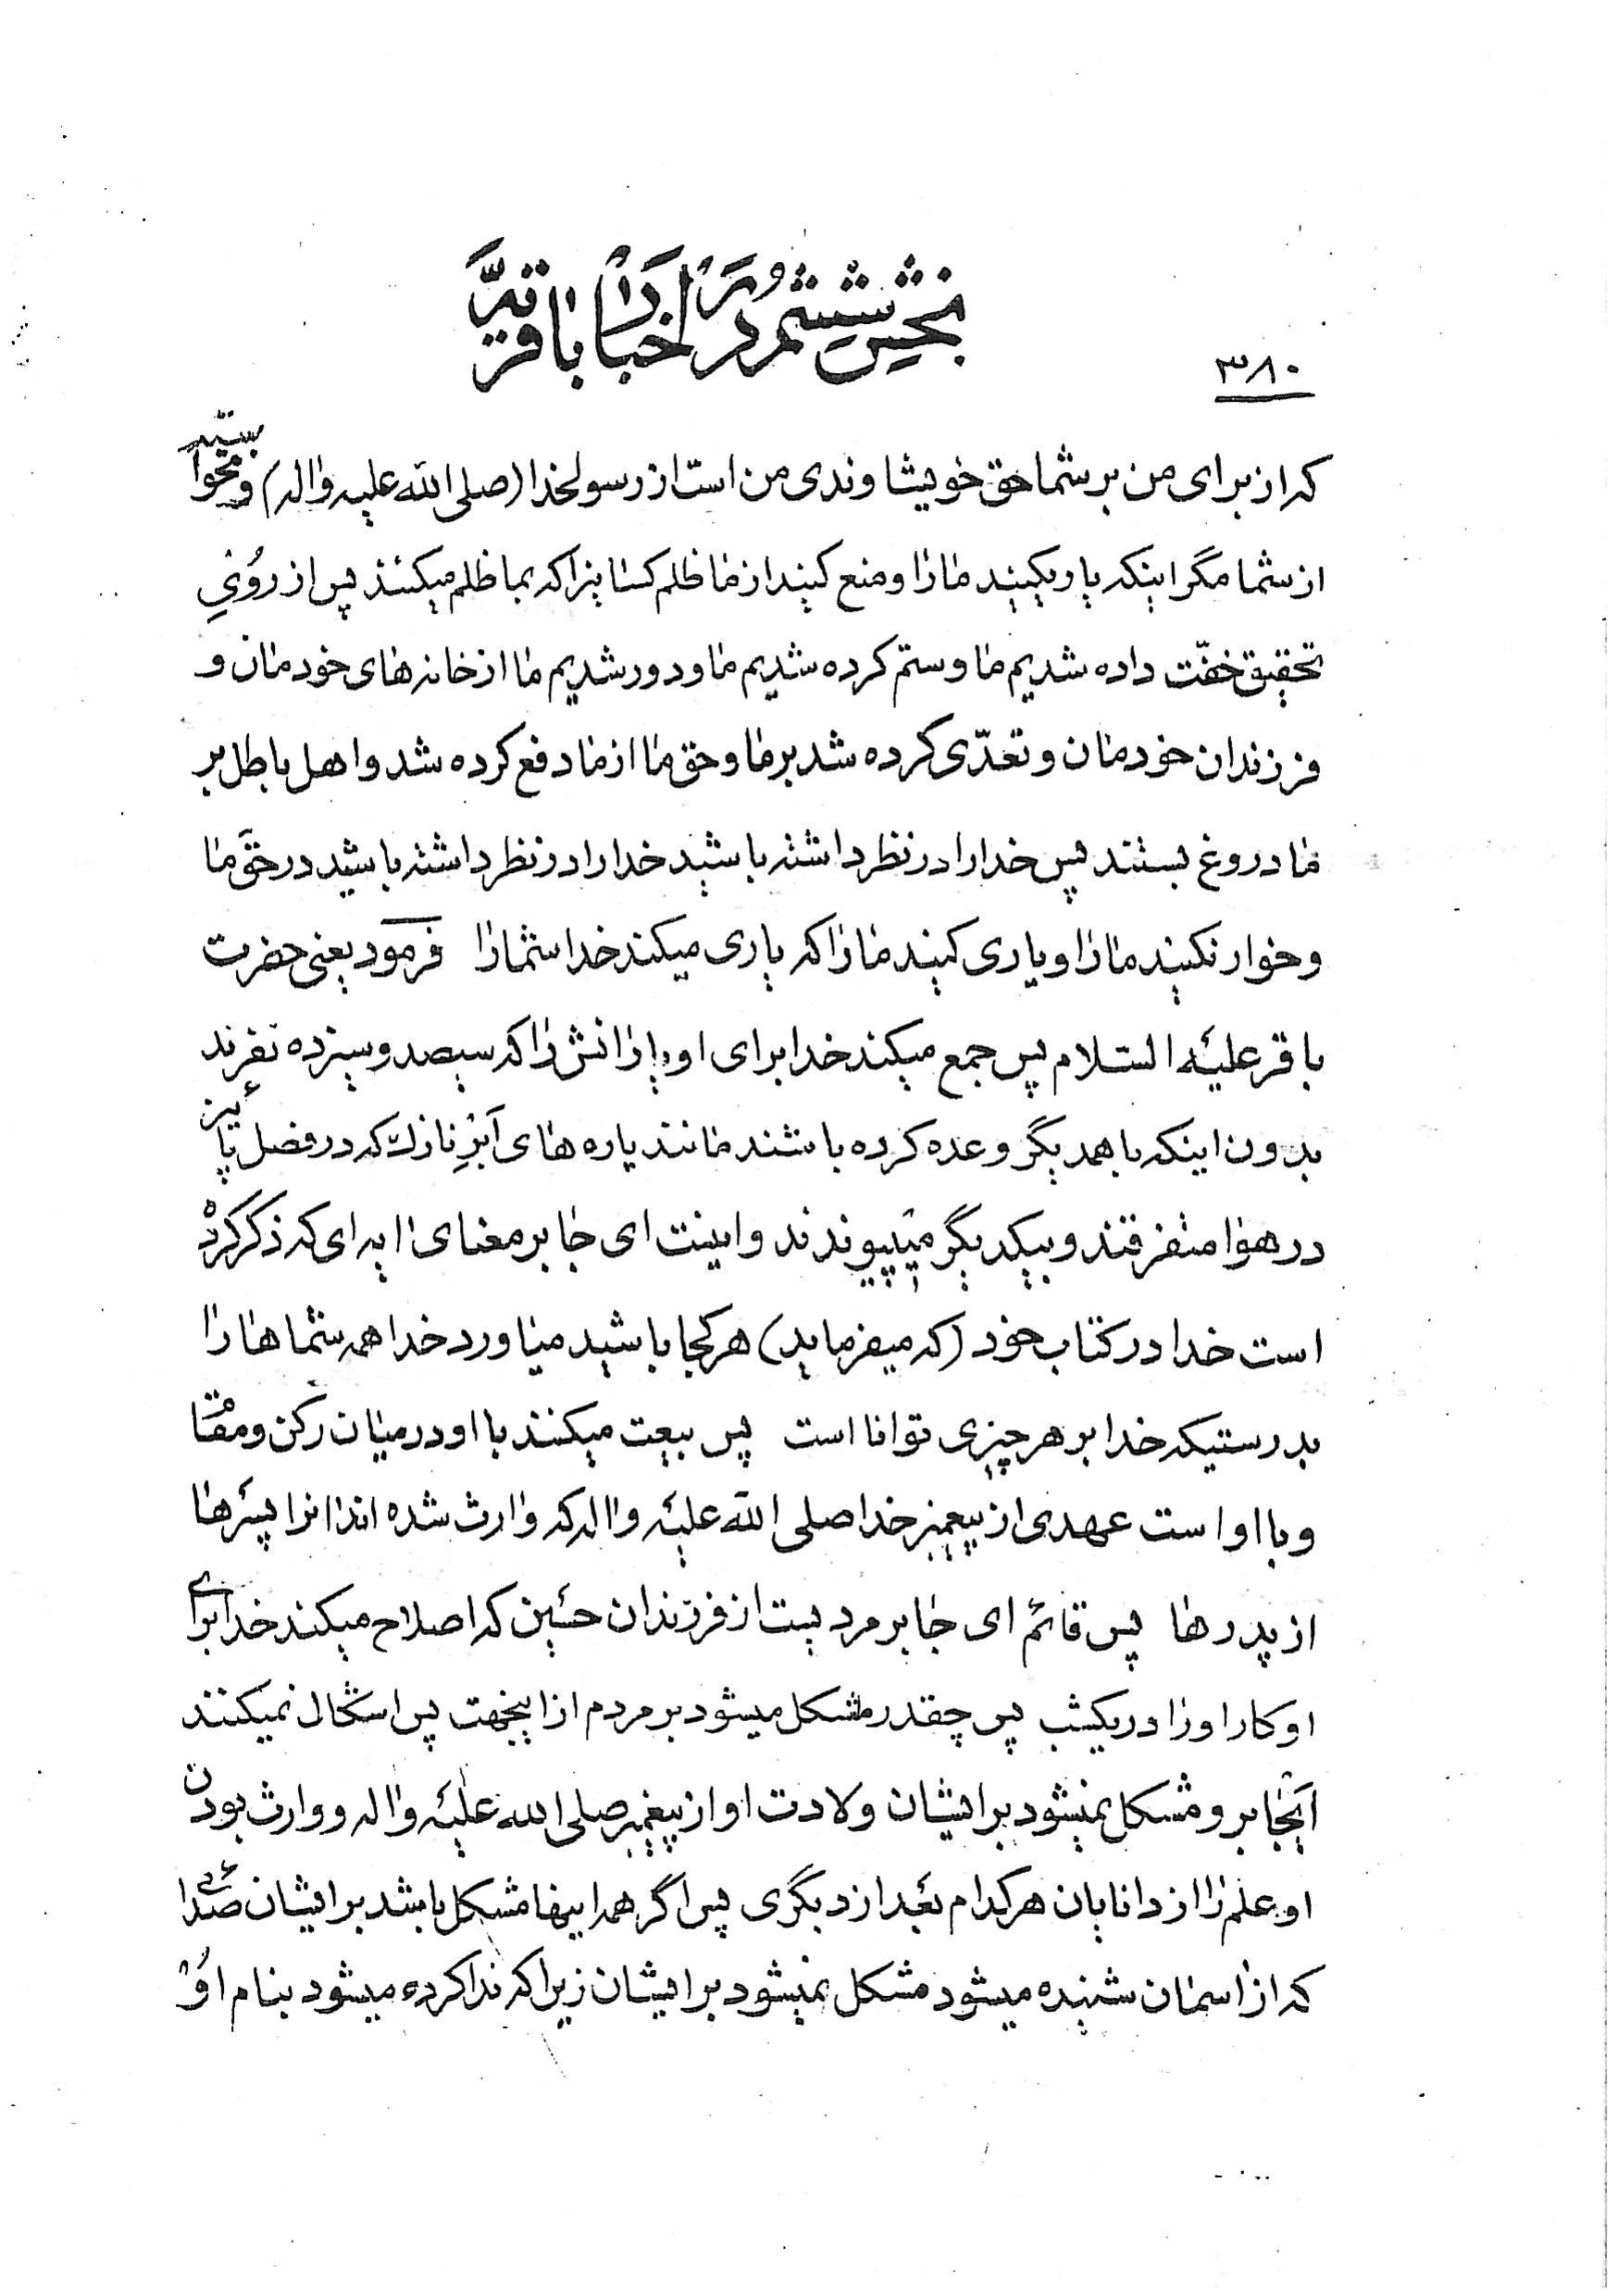 بخش ششم در اخبار باقریّه
۳۸۰
که از برای من بر شما حق خویشاوندی من است از رسولخدا (صلی الله علیه واله) و نمیخواهم
از شما مگر اینکه یاریکنید ما را و منع کنید از ما ظلم کسانیرا که بما ظلم میکنند پس از رُوی
تحقیق خفّت داده شدیم ما و ستم کرده شدیم ما و دور شدیم ما از خانه های خودمان و
فرزندان خودمان و تعدّی کرده شد بر ما و حق ما از ما دفع کرده شد و اهل باطل بر
ما دروغ بستند پس خدا را در نظر داشته باشید خدا را در نظر داشته باشید در حقّ ما
و خوار نکنید ما را و یاری کنید ما را که یاری میکند خدا شما را فرمود یعنی حضرت
باقر علیه السّلام پس جمع میکند خدا برای او یارانش را که سیصد و سیزده نفرند
بدون اینکه با همدیگر وعده کرده باشند مانند پاره های آبرِ نازک که در فصل پائیز
در هوا متفرقند و بیکدیگر میپیوندند و اینست ای جابر معنای ایه ای که ذکر کرده
است خدا در کتاب خود (که میفرماید) هر کجا باشید میاورد خدا همه شماها را
بدرستیکه خدا بر هر چیزی توانا است پس بیعت میکنند با او در میان رکن و مقام
و با او است عهدی از پیغمبر خدا صلی الله علیه واله که وارث شده اند انرا پسرها
از پدرها پس قائم ای جابر مردیست از فرزندان حسین که اصلاح میکند خدا برای
او کار او را در یکشب پس چقدر مشکل میشود بر مردم از اینجهت پس اشکال نمیکنند
ایجابر و مشکل نمیشود بر ایشان ولادت او از پیغمبر صلی الله علیه واله و وارث بودن
او علم را از دانایان هر کدام بعد از دیگری پس اگر همه اینها مشکل باشد بر ایشان صدائی
که از اسمان شنیده میشود مشکل نمیشود بر ایشان زیرا که ندا کرده میشود بنام او و